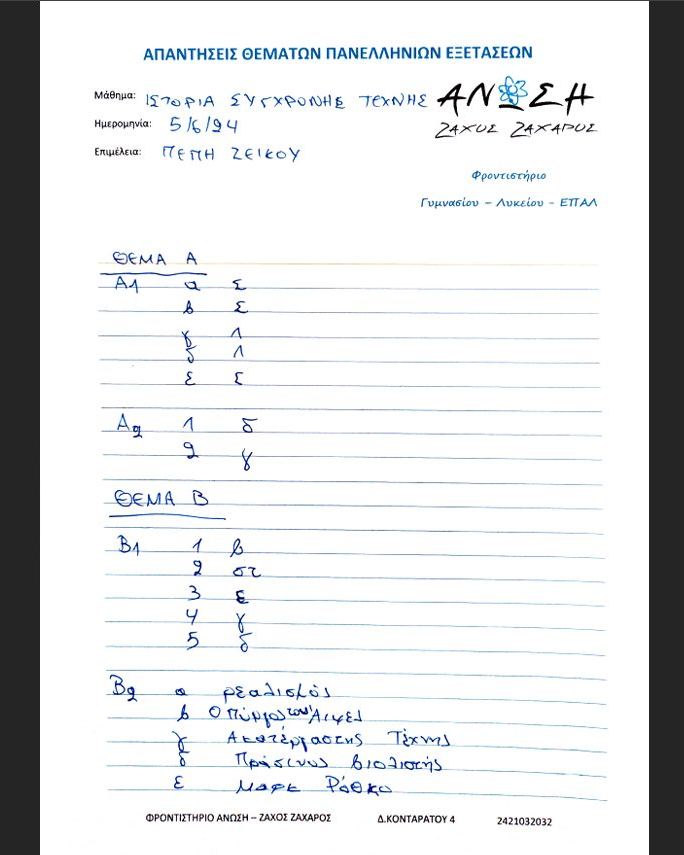 ΑΠΑΝΤΗΣΕΙΣ ΘΕΜΑΤΩΝ ΠΑΝΕΛΛΗΝΙΩΝ ΕΞΕΤΑΣΕΩΝ
Μάθημα: ΙΣΤΟΡΙΑ ΣΥΓΧΡΟΝΗΣ ΤΕΧΝΗΣ
ΑΝΩΣΗ
ΖΑΧΟΣ ΖΑΧΑΡΟΣ
Ημερομηνία: 5/6/24
Επιμέλεια: ΠΕΠΗ ΖΕΙΚΟΥ
Φροντιστήριο
Γυμνασίου – Λυκείου - ΕΠΑΛ
ΘΕΜΑ Α
Α1 α Σ
β Σ
γ Λ
δ Λ
ε Σ
Α2 1 δ
2 γ
ΘΕΜΑ Β
Β1 1 β
2 στ
3 ε
4 γ
5 δ
Β2 α ρεαλισμός
β Ο Πύργος του Άιφελ
γ Ακατέργαστης Τέχνης
δ Πράσινος βιολιστής
ε Μαρκ Ρόθκο
ΦΡΟΝΤΙΣΤΗΡΙΟ ΑΝΩΣΗ – ΖΑΧΟΣ ΖΑΧΑΡΟΣ Δ.ΚΟΝΤΑΡΑΤΟΥ 4 2421032032